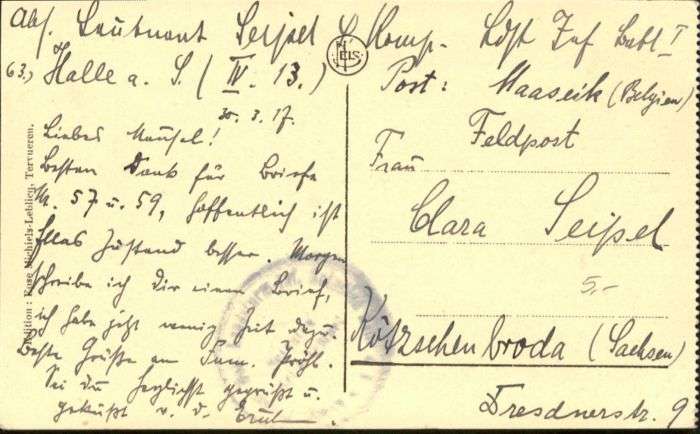 Abs. Leutnant Seipel Komp. Ldst Inf Batl I
63.) Halle a. S. (IV. 13.)
Post: Maaseik (Belgien)
30. 3. 17.
Feldpost
Liebes Mausel!
Besten Dank für Briefe
N. 57 u. 59, hoffentlich ist
Zustand besser. Morgen
schreibe ich dir einen Brief,
ich habe jetzt wenig Zeit dazu.
Beste Grüße an Fam.
Sei du herzlichst gegrüßt u.
geküßt v. d.
Frau
Clara Seipel
5,-
Kötzschenbroda (Sachsen)
Dresdnerstr. 9
NELS
Edition: Michiels-Leblicq, Tervueren.